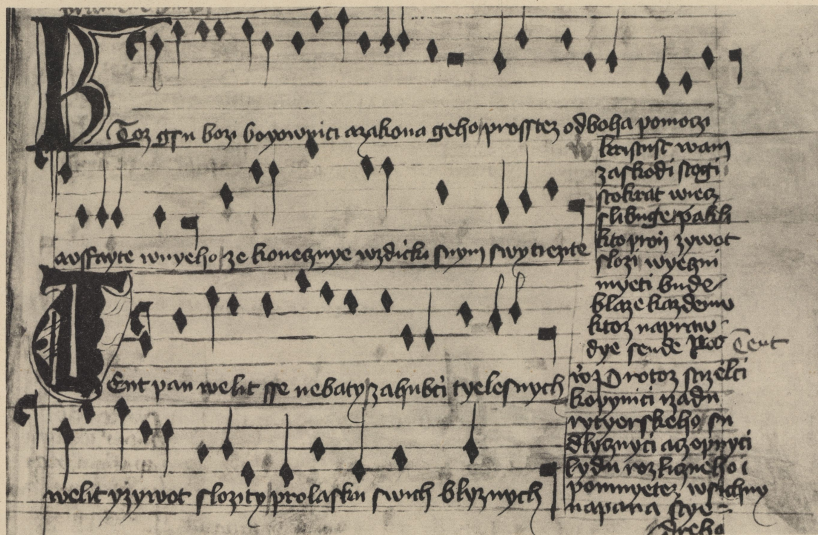 Ktoz gsu bozi boyownici azakona geho prosstez odboha pomoczi
aussayte wnyeho ze konecznye wzdicku snym swytiezite
Tent pan welit sse nebaty zahubci tyelesnych
welit yzywot slozity prolasku swich blyznych
kristust wam
zaskodi stogi
stokrat wiecz
slibuge pakli
kto pron zywot
slozi wyeczni
myeti bude
blaze kazdemu
ktoz napraw
dye sende Tent
Protoz strzelci
kopynici zadu
rytyerskeho su
lydu rozlicneho i
pomnyetez wsichny
napana